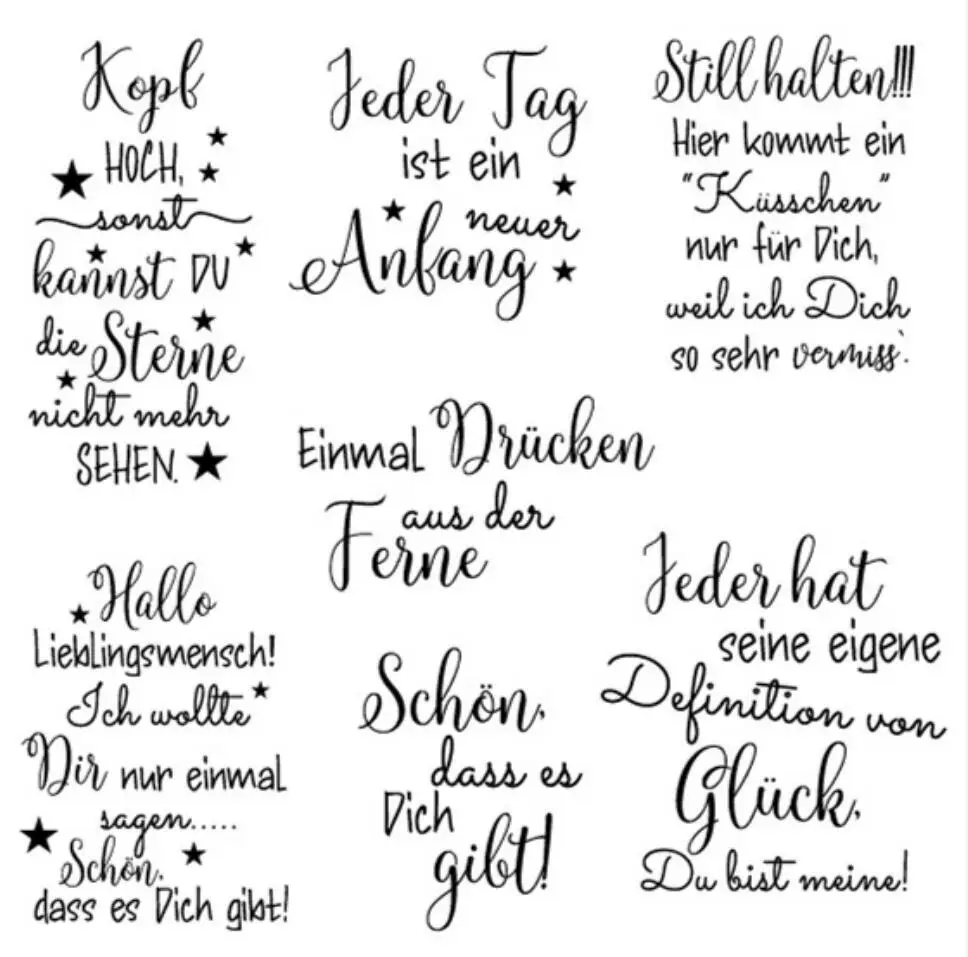 Kopf
HOCH,
sonst
kannst DU
die Sterne
nicht mehr
SEHEN.
Jeder Tag
ist ein
neuer
Anfang
Still halten!!!
Hier kommt ein
"Küsschen"
nur für Dich,
weil ich Dich
so sehr vermiss`.
Einmal Drücken
aus der
Ferne
Hallo
Lieblingsmensch!
Ich wollte
Dir nur einmal
sagen.....
Schön,
dass es Dich gibt!
Schön,
dass es
Dich
gibt!
Jeder hat
seine eigene
Definition von
Glück,
Du bist meine!